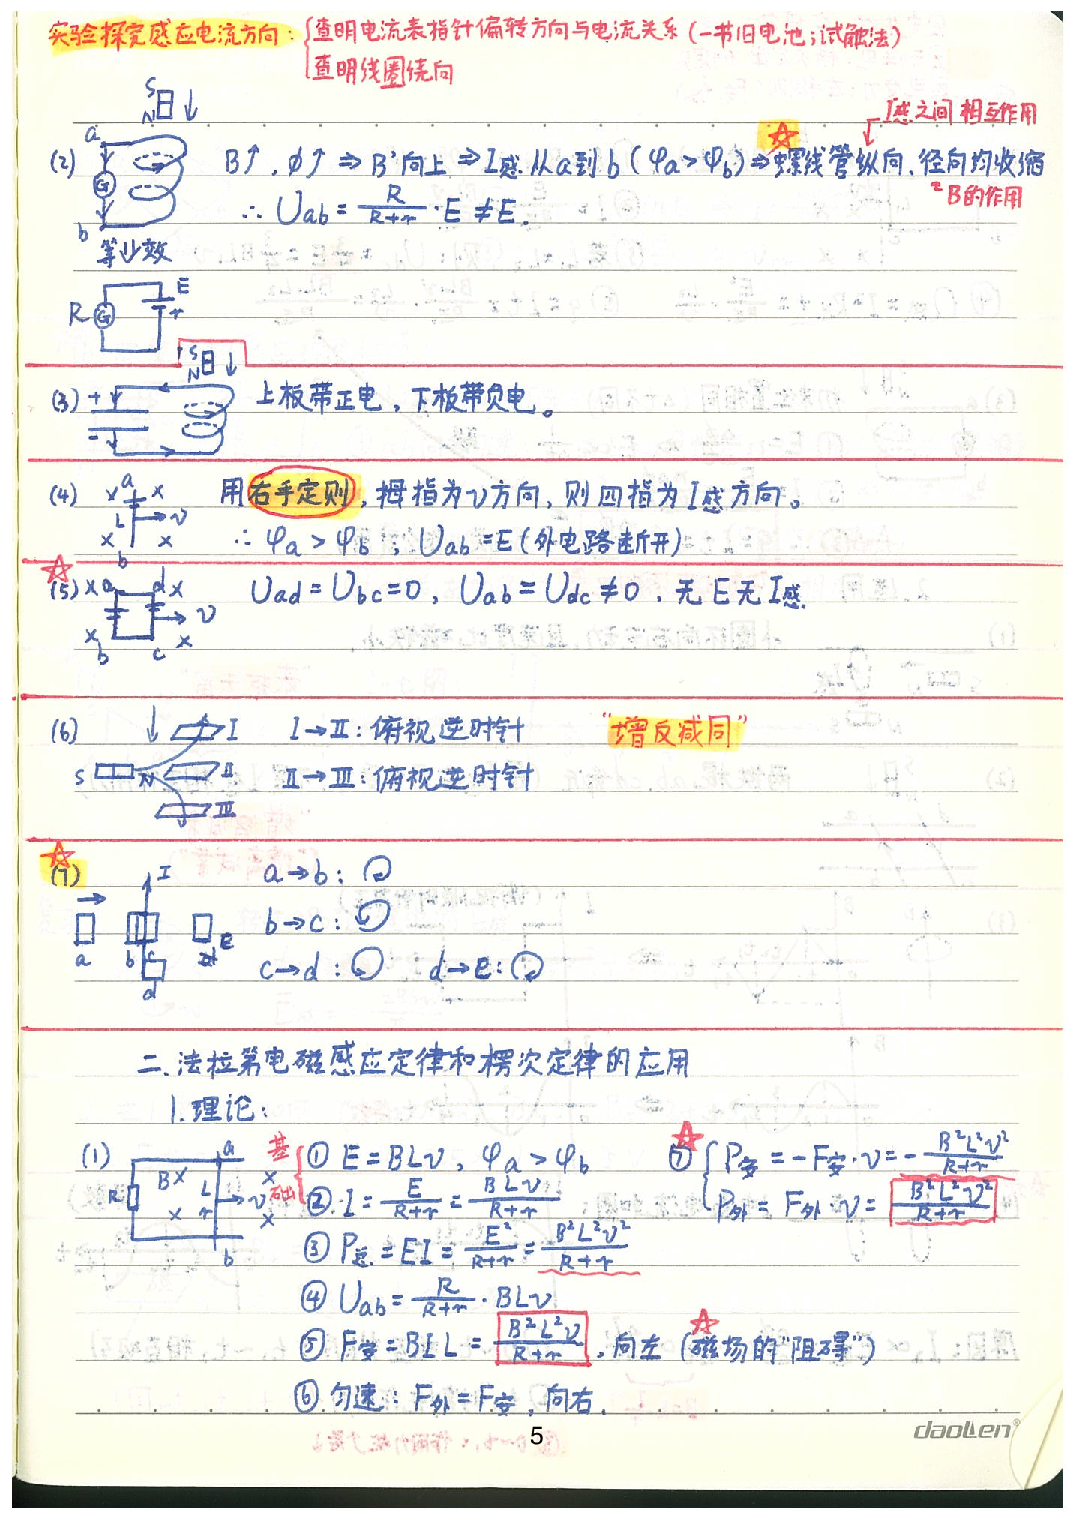 实验探究感应电流方向：{查明电流表指针偏转方向与电流关系（一节旧电池；试触法）
查明线圈绕向
I感之间相互作用
S
N
(2) a G b B↑，φ↑ ⇒ B'向上 ⇒ I感从a到b（φa＞φb）⇒ 螺线管纵向、径向均收缩
B的作用
∴ Uab = R/(R+r)·E ≠ E.
等效
R G E r
S
N
(3) + - 上板带正电，下板带负电。
(4) a × × L v × × b 用右手定则，拇指为v方向，则四指为I感方向。
∴ φa＞φb；Uab=E（外电路断开）
(5) × a d × v × b c × Uad=Ubc=0，Uab=Udc≠0．无E无I感.
(6) I I→II：俯视逆时针 "增反减同"
S N II II→III：俯视逆时针
III
(7) I a→b：
b→c：
a b c d e
c→d： d→e：
二、法拉第电磁感应定律和楞次定律的应用
1.理论：
(1) a b R B × × L r v × × 基础 ① E=BLv，φa＞φb
② I = E/(R+r) = BLv/(R+r)
③ P总=EI = E²/(R+r) = B²L²v²/(R+r)
④ Uab = R/(R+r)·BLv
⑤ F安=BIL = B²L²v/(R+r)，向左（磁场的"阻碍"）
⑥ 匀速：F外=F安，向右.
⑦ {P安=-F安·v=-B²L²v²/(R+r)
P外=F外·v=B²L²v²/(R+r)
5
daolen®